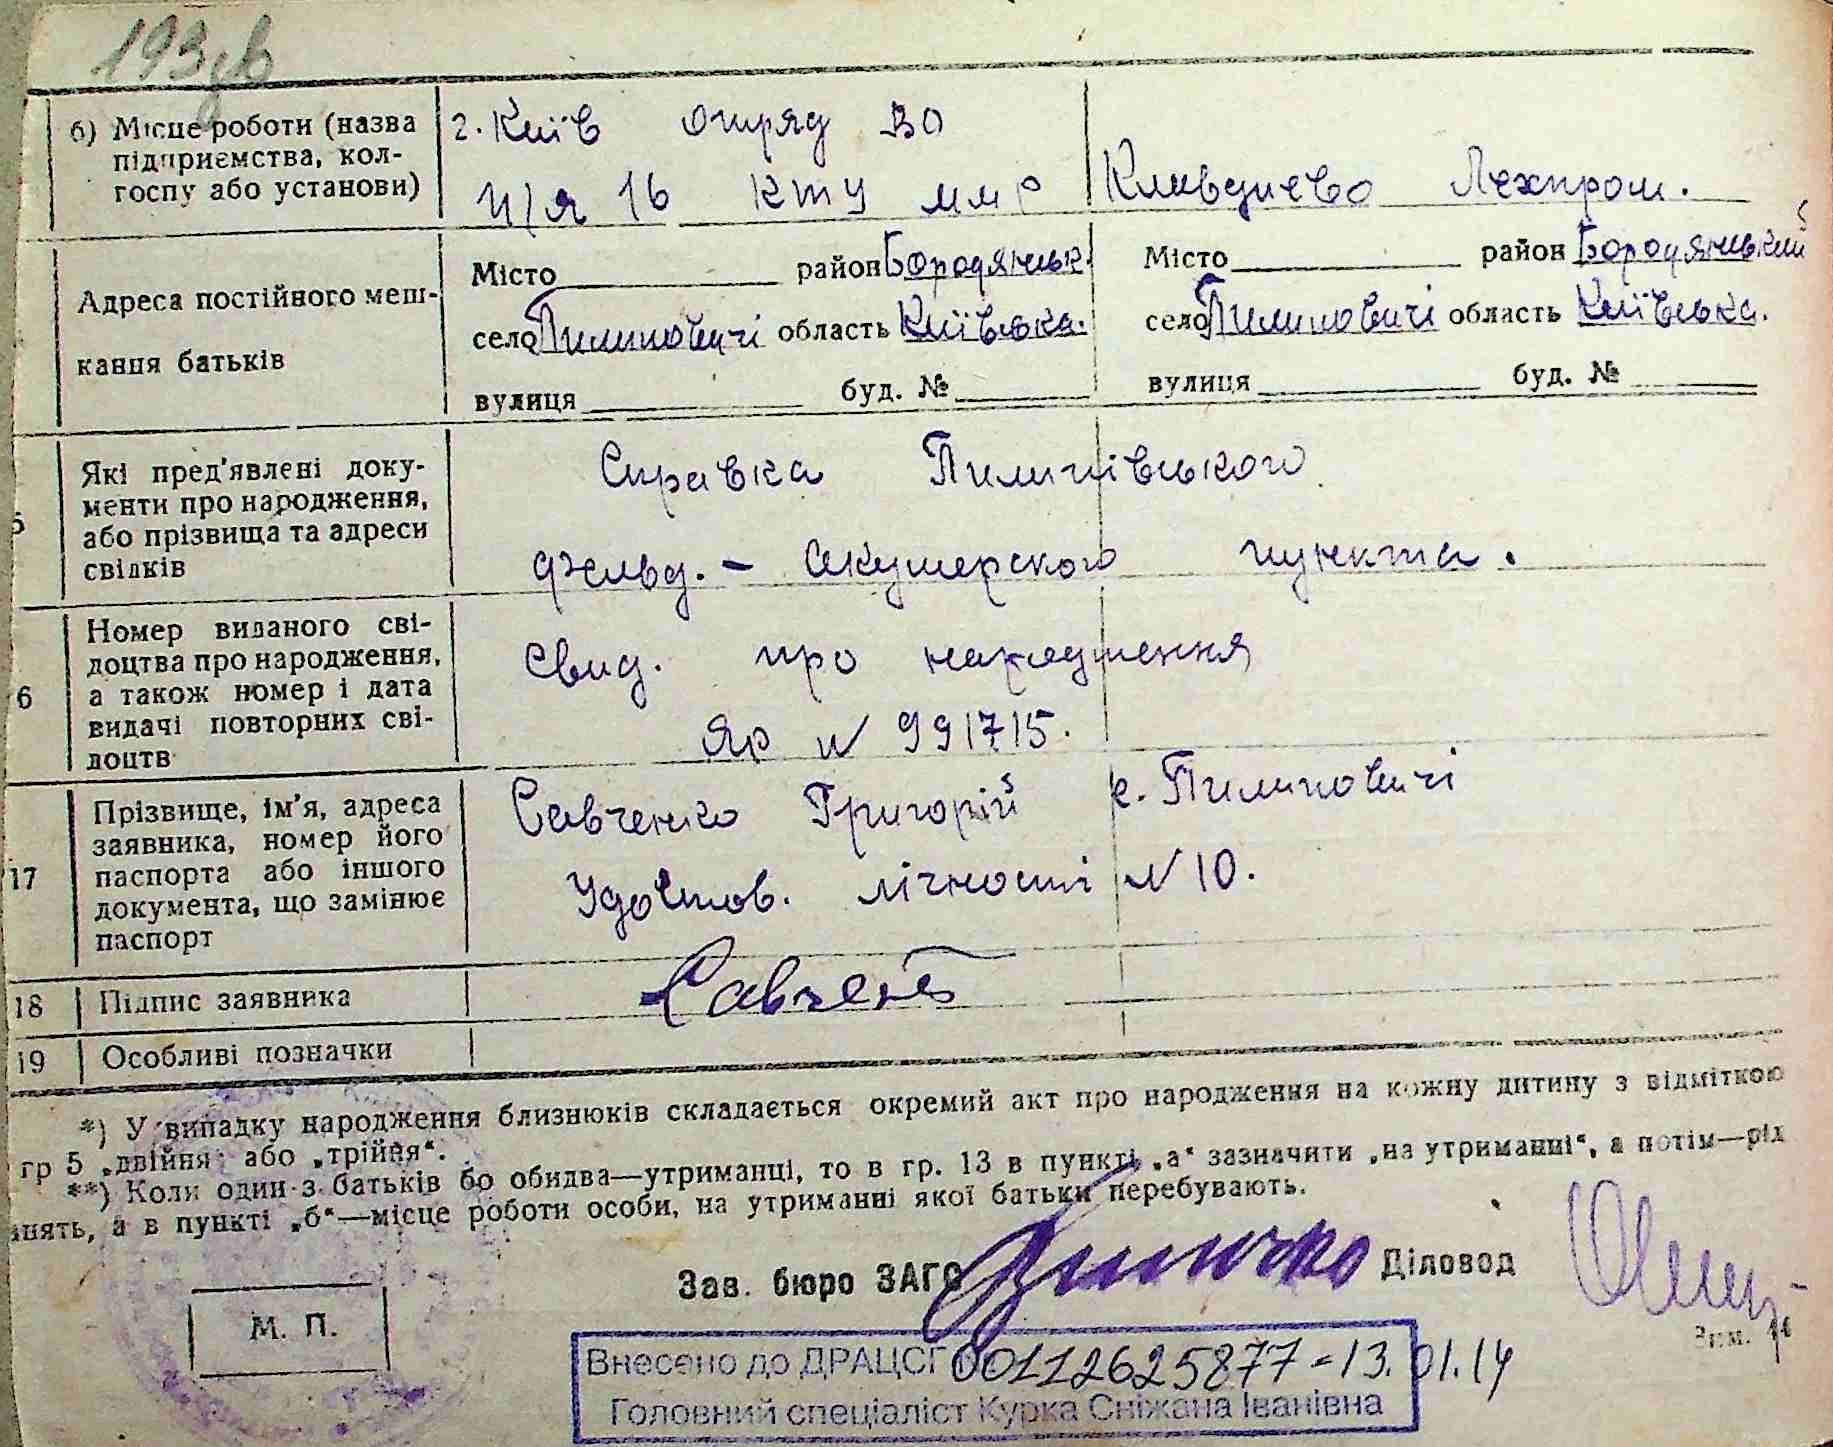 193зв
б) Місце роботи (назва підприємства, колгоспу або установи)
г. Київ отряд ВО
п/я 16 КТУ ММР
Клавдиєво Лехпром.
Адреса постійного мешкання батьків
Місто район Бородянськ.
село Пилиповичі область Київська.
вулиця буд. №
Місто район Бородянський
село Пилиповичі область Київська.
вулиця буд. №
5
Які пред'явлені документи про народження, або прізвища та адреси свідків
Справка Пилипівського
фельд. - акушерского пункта.
6
Номер виданого свідоцтва про народження, а також номер і дата видачі повторних свідоцтв
Свид. про народження
Яр N 991715.
17
Прізвище, ім'я, адреса заявника, номер його паспорта або іншого документа, що замінює паспорт
Савченко Григорій с. Пилиповичі
Удостов. лічності N 10.
18
Підпис заявника
Савчен
19
Особливі позначки
*) У випадку народження близнюків складається окремий акт про народження на кожну дитину з відміткою
гр 5 „двійня“ або „трійня“.
**) Коли один з батьків бо обидва—утриманці, то в гр. 13 в пункті „а“ зазначити „на утриманні“, а потім—рід
анять, а в пункті „б“—місце роботи особи, на утриманні якої батьки перебувають.
Зав. бюро ЗАГС
Діловод
М. П.
Внесено до ДРАЦСГ 00112625877-13.01.14
Головний спеціаліст Курка Сніжана Іванівна